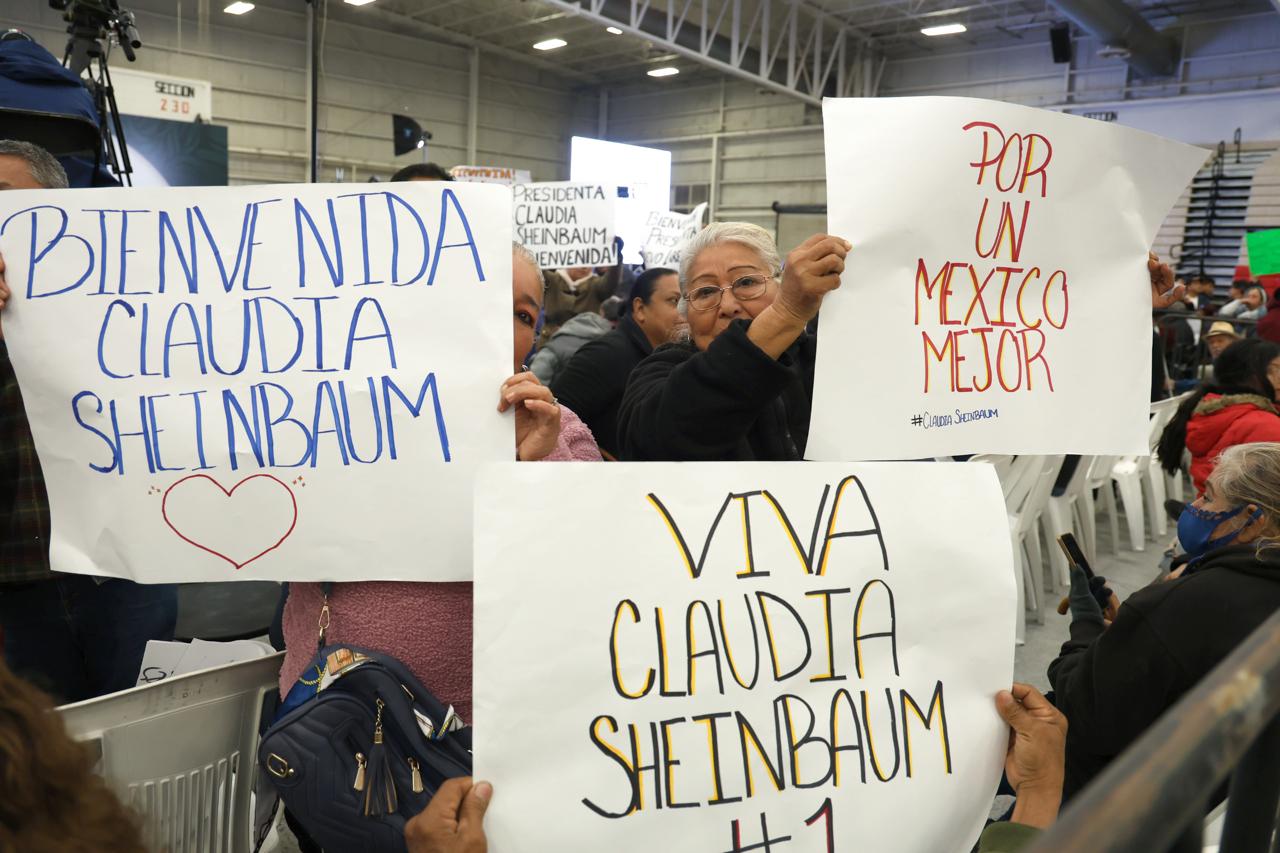 SECCION
230
BIENVENIDA
CLAUDIA
SHEINBAUM
PRESIDENTA
CLAUDIA
SHEINBAUM
BIENVENIDA!
POR
UN
MEXICO
MEJOR
#CLAUDIA SHEINBAUM
VIVA
CLAUDIA
SHEINBAUM
#1